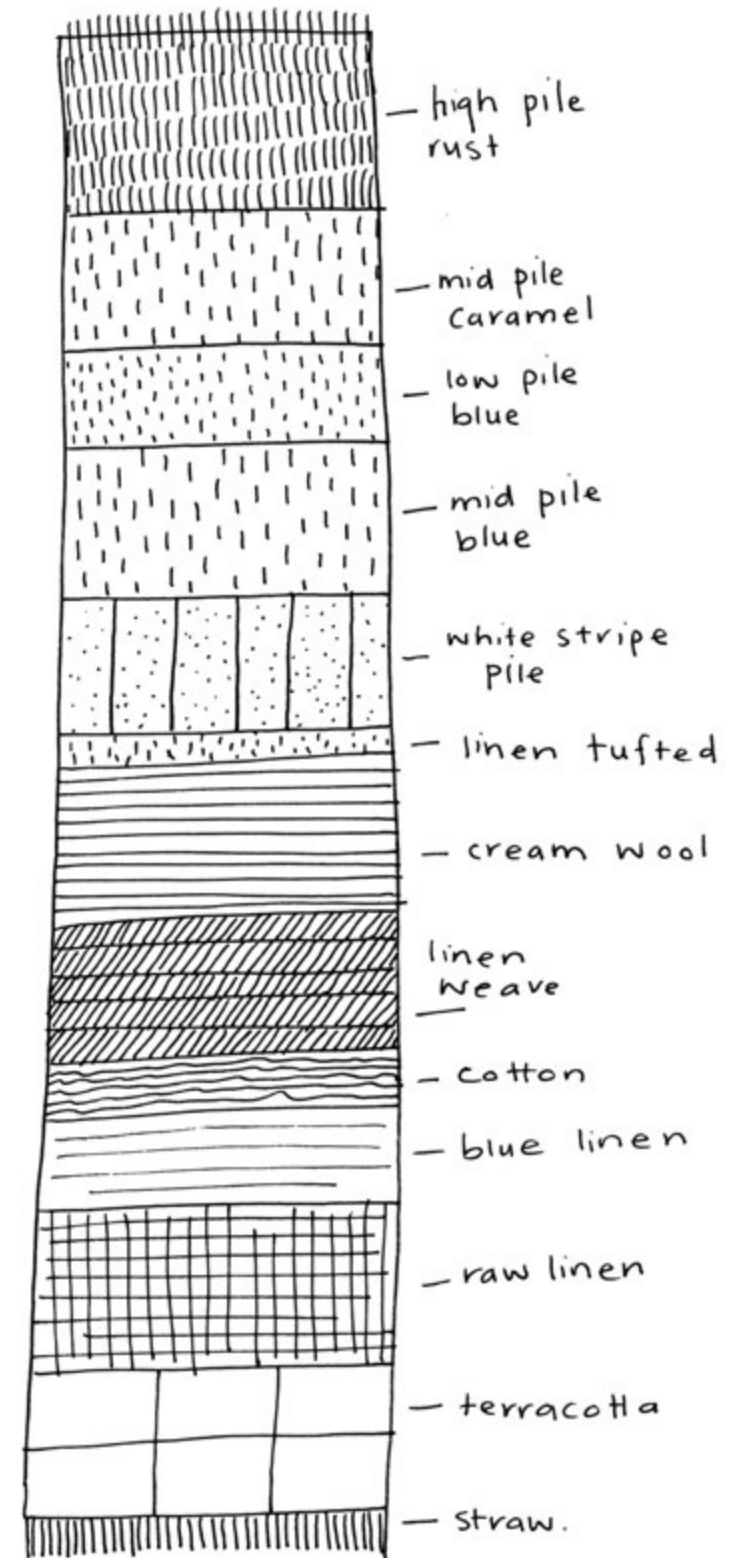 high pile
rust
mid pile
caramel
low pile
blue
mid pile
blue
white stripe
pile
linen tufted
cream wool
linen
weave
cotton
blue linen
raw linen
terracotta
straw.